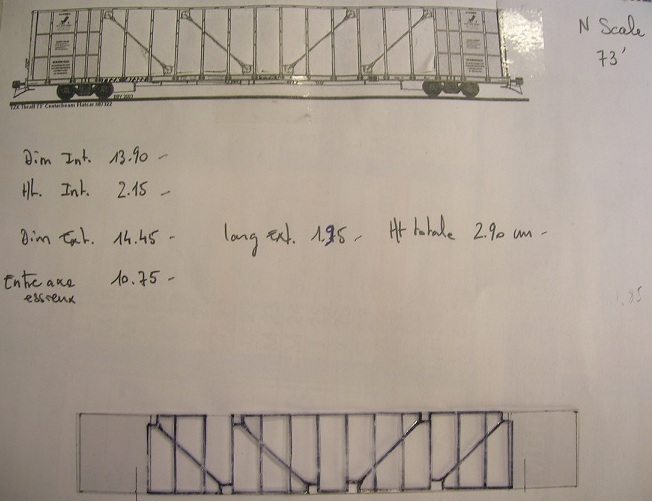 N Scale
73'
TZX Thrall 73' Centerbeam Flatcar
Dim Int. 13.90 -
Ht. Int. 2.15 -
Dim Ext. 14.45 - long Ext. 1.95 - Ht totale 2.90 cm -
Entre axe 10.75 -
essieux
1.85